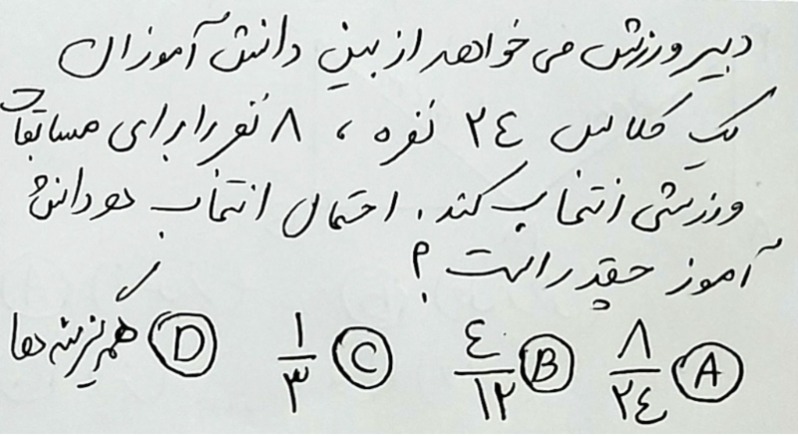 دبیر ورزش می خواهد از بین دانش آموزان
یک کلاس ٢٤ نفره ، ٨ نفر را برای مسابقات
ورزشی انتخاب کند . احتمال انتخاب هر دانش
آموز چقدر است ؟
A ٨/٢٤ B ٤/١٢ C ١/٣ D همه گزینه ها